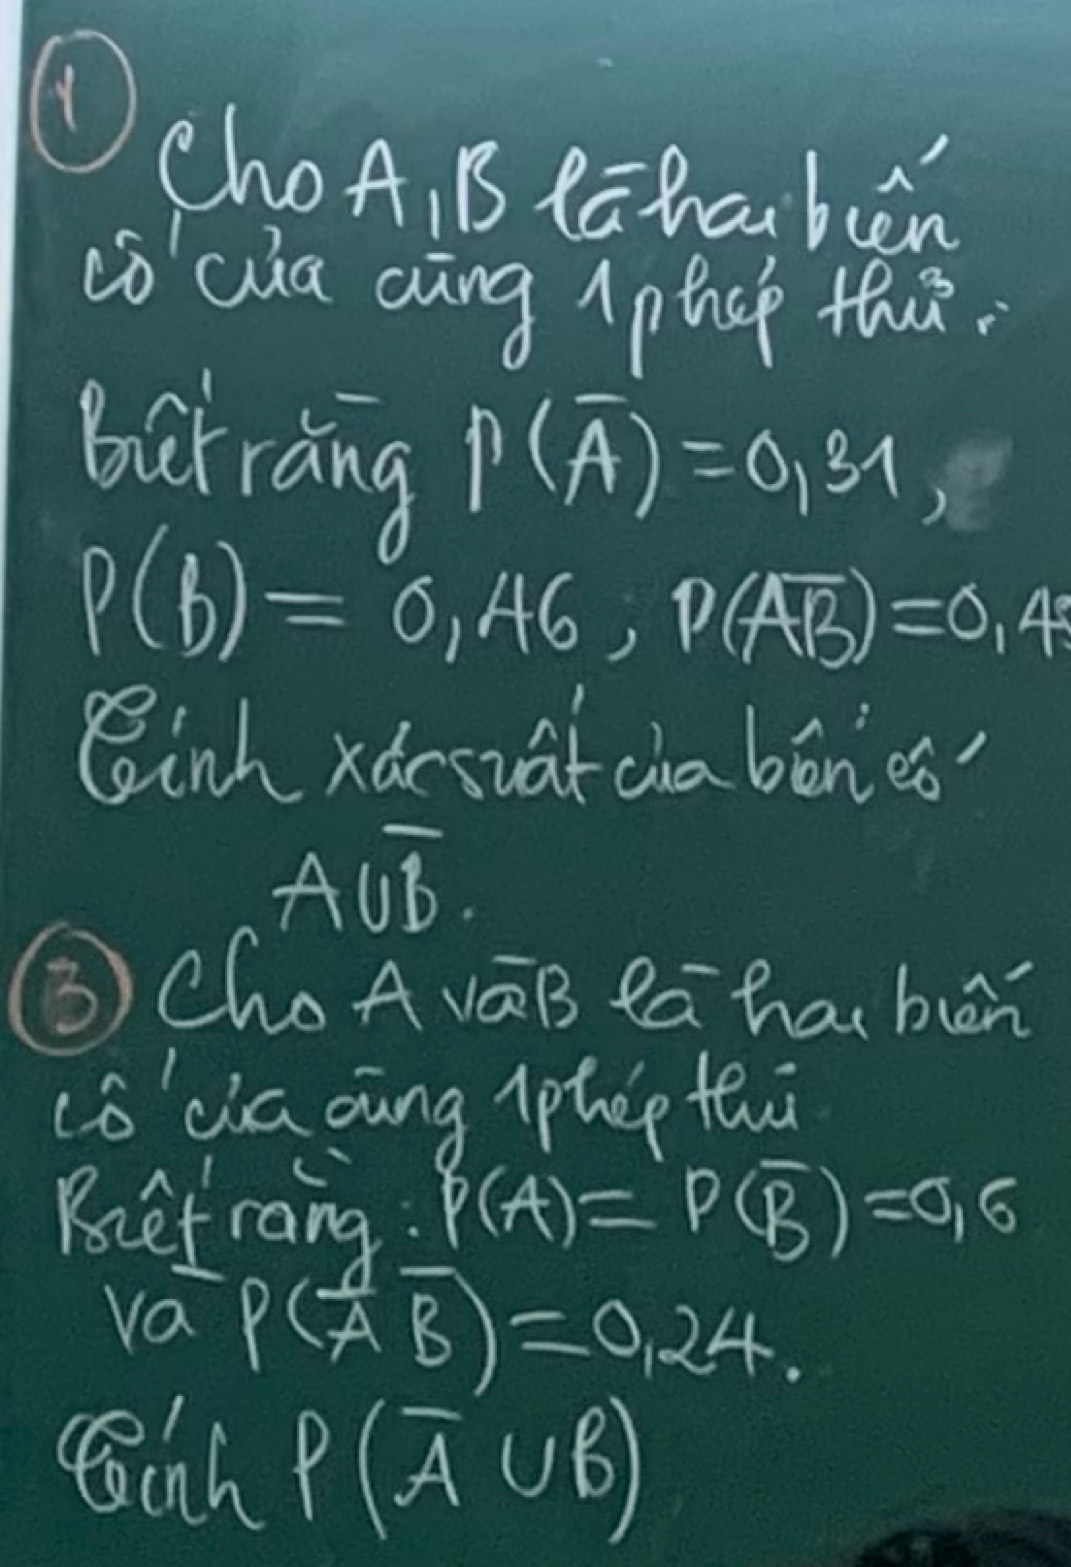 1
Cho A, B là hai biến
cố của cùng 1 phép thử.
Biết rằng P(A̅) = 0,31,
P(B) = 0,46, P(AB̅) = 0,4
Tính xác suất của biến cố
A∪B̅.
3 Cho A và B là hai biến
cố của cùng 1 phép thử
Biết rằng: P(A) = P(B̅) = 0,6
và P(A̅ B̅) = 0,24.
Tính P(A̅ ∪ B)